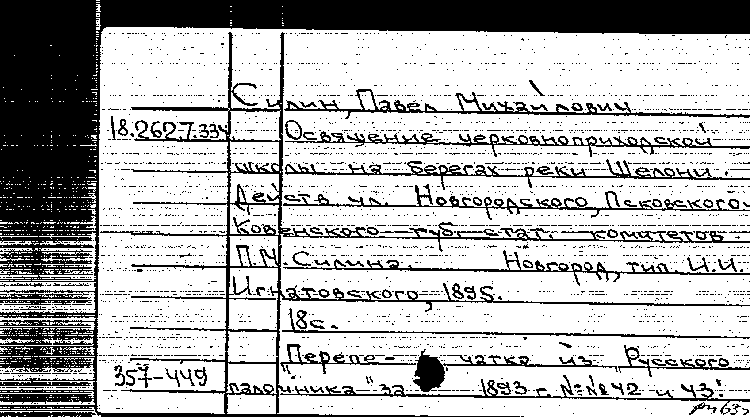 Силин, Павел Михайлович
18.262.7.334 Освящение церковноприходской
школы на берегах реки Шелони.
Действ. чл. Новгородского, Псковского
Ковенского губ. стат. комитетов
П.М. Силина. Новгород, тип. И.И.
Игнатовского, 1895.
18с.
"Перепечатка из "Русского
357-449 паломника" за 1893 г. №№ 42 и 43.